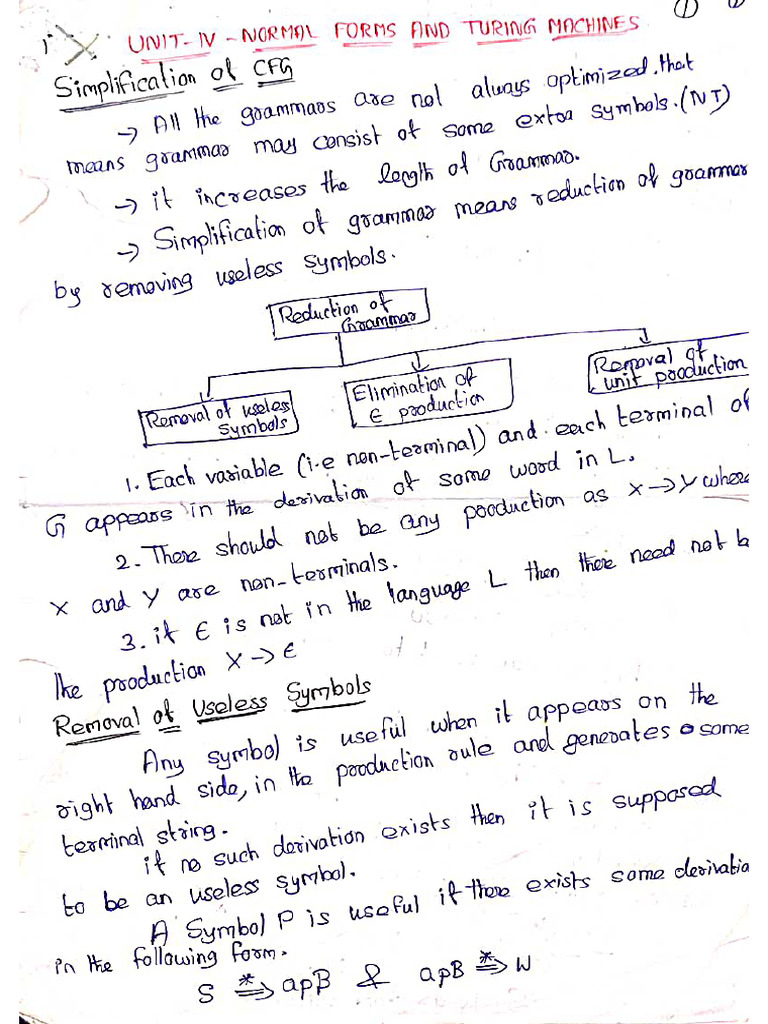 ① ②
1. UNIT-IV - NORMAL FORMS AND TURING MACHINES
Simplification of CFG
→ All the grammars are not always optimized. that
means grammar may consist of some extra symbols. (NT)
→ it increases the length of Grammar.
→ Simplification of grammar means reduction of grammar
by removing useless symbols.
Reduction of
Grammar
Removal of useless
symbols
Elimination of
ϵ production
Removal of
unit production
1. Each variable (i.e non-terminal) and each terminal of
G appears in the derivation of some word in L.
2. There should not be any production as X → Y where
X and Y are non-terminals.
3. if ϵ is not in the language L then there need not b
the production X → ϵ
Removal of Useless Symbols
Any symbol is useful when it appears on the
right hand side, in the production rule and generates some
terminal string.
if no such derivation exists then it is supposed
to be an useless symbol.
A Symbol P is useful if there exists some derivatio
in the following form.
S *⇒ apB & apB *⇒ W